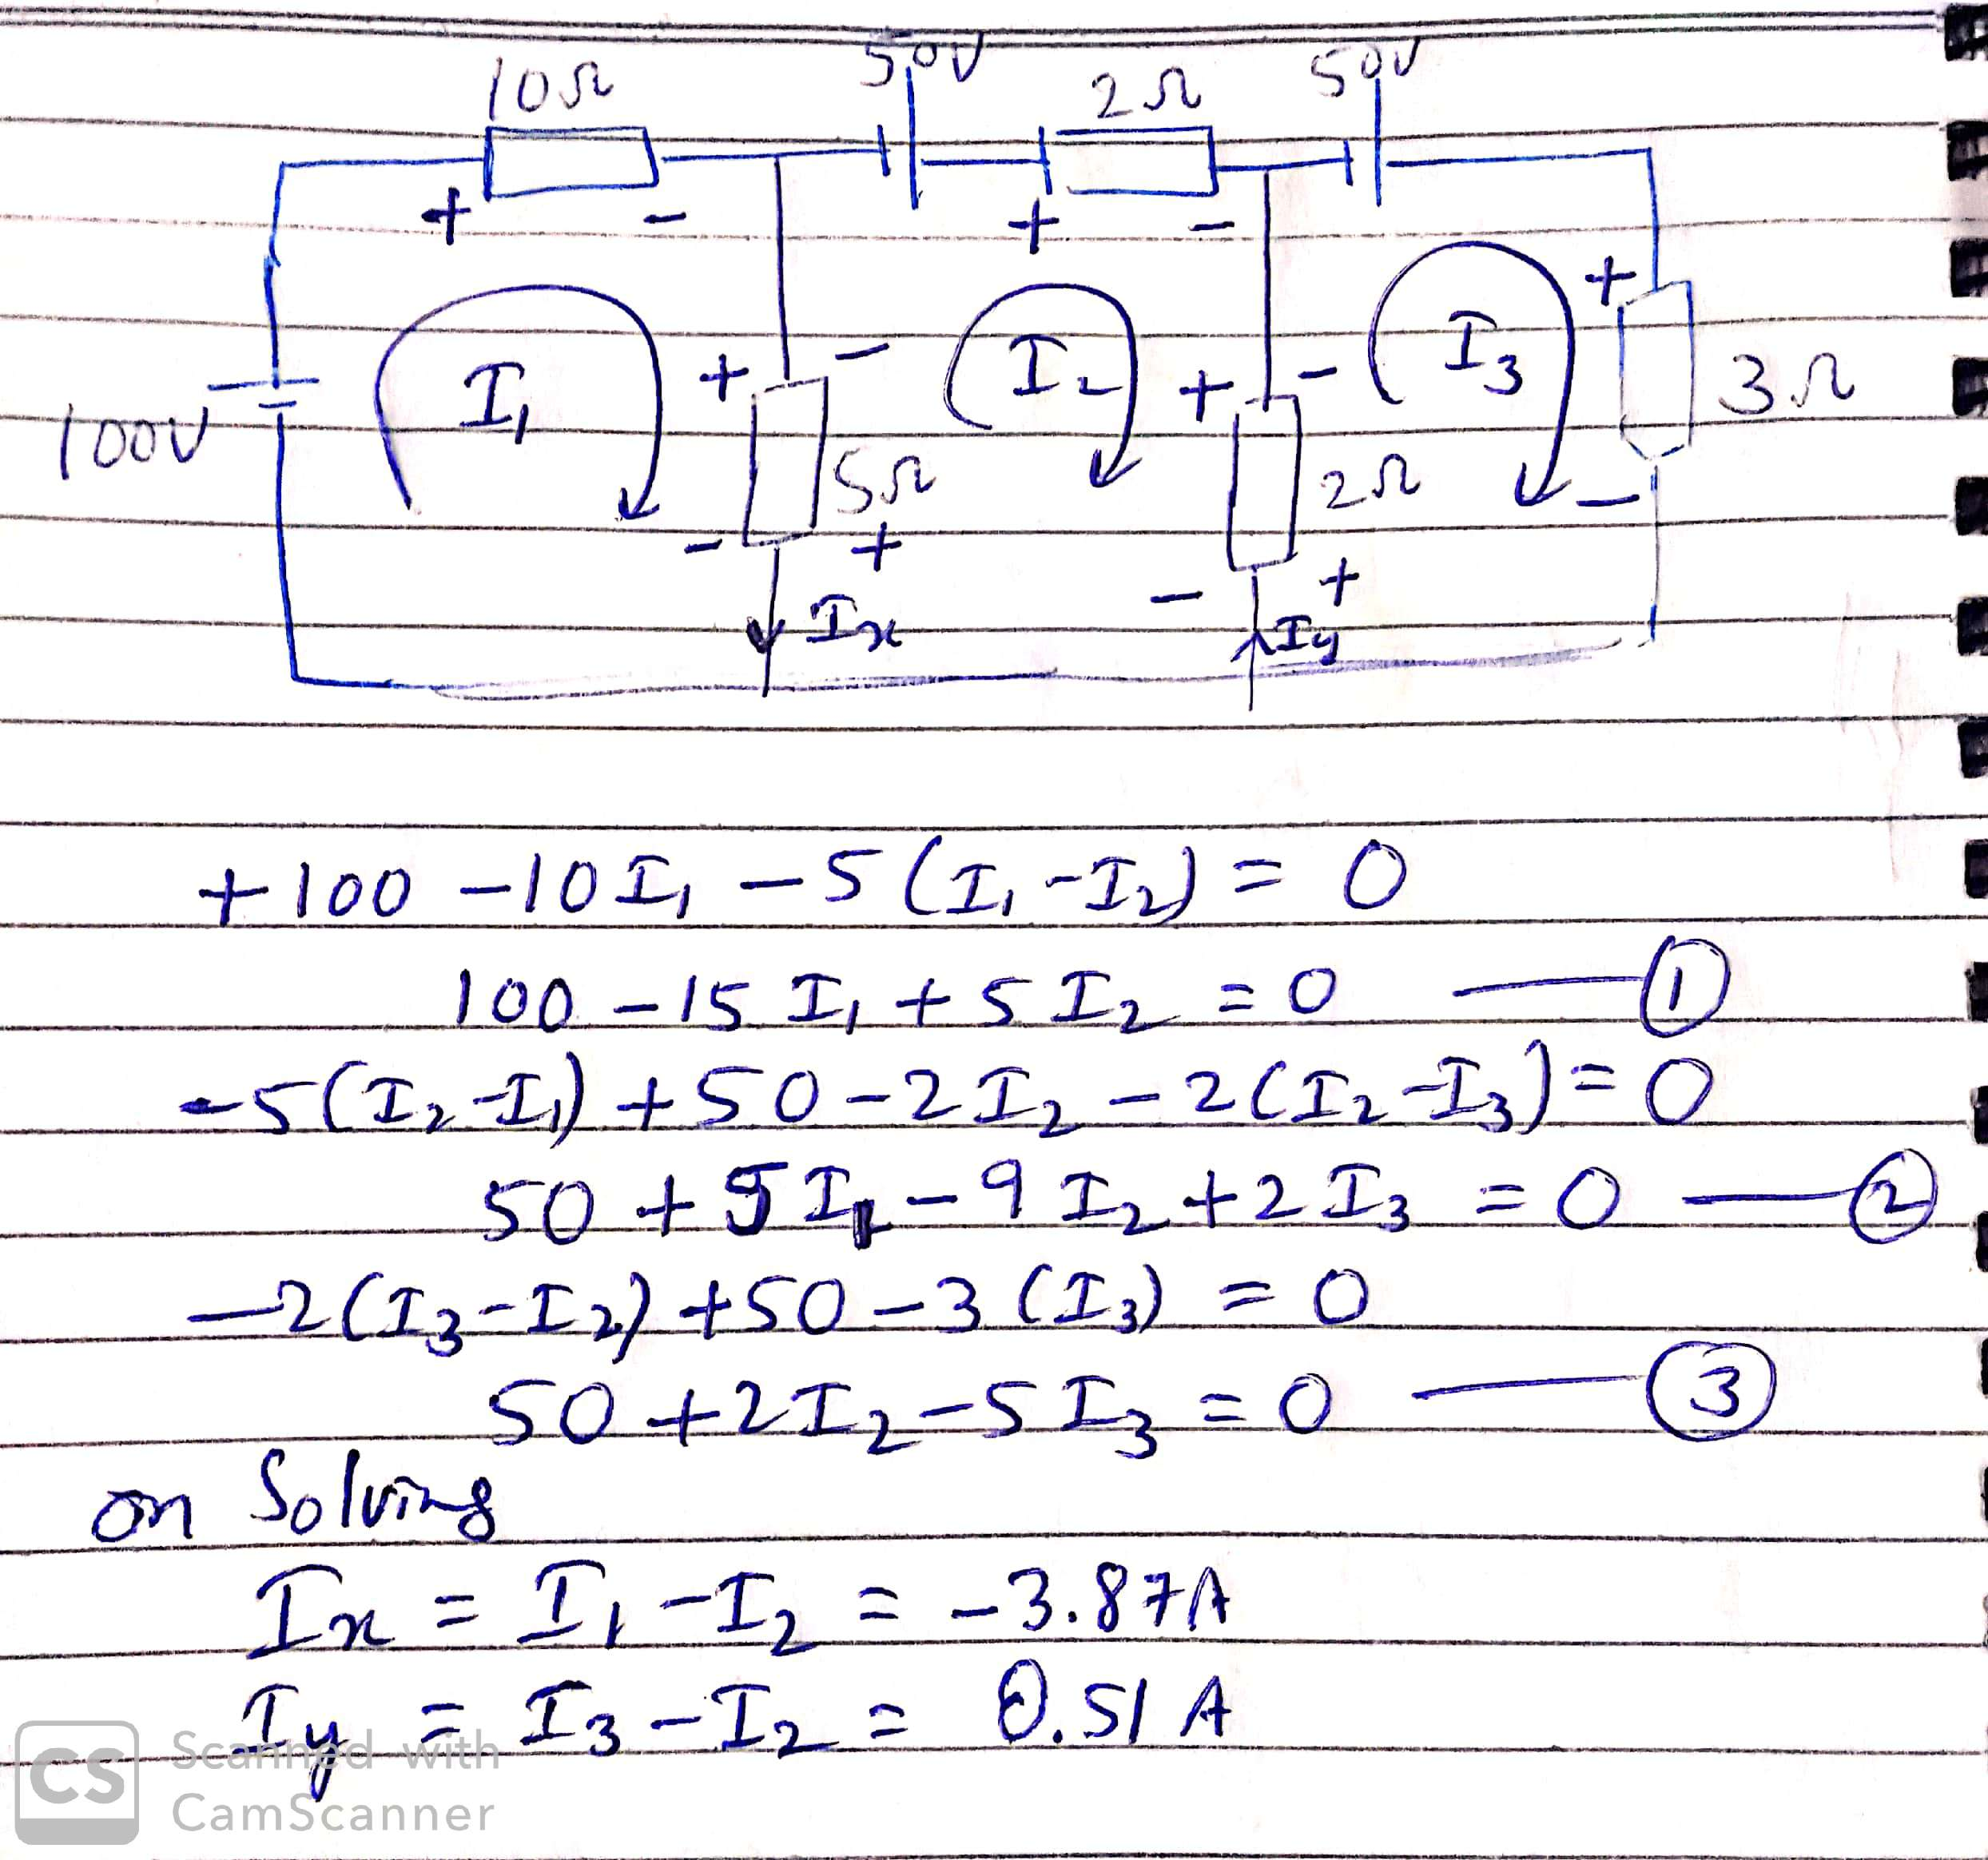 10Ω 50V 2Ω 50V
+ - + -
100V I₁ + - I₂ + - I₃ + 3Ω
5Ω 2Ω -
- + - +
Ix Iy
+100 -10I₁ -5(I₁-I₂) = 0
100 -15I₁ +5I₂ = 0 —①
-5(I₂-I₁) +50 -2I₂ -2(I₂-I₃) = 0
50 + 5I₁ -9I₂ +2I₃ = 0 —②
-2(I₃-I₂) +50 -3(I₃) = 0
50 +2I₂ -5I₃ = 0 —③
on Solving
Ix = I₁ -I₂ = -3.87A
Iy = I₃ -I₂ = 0.51 A
CS Scanned with
CamScanner